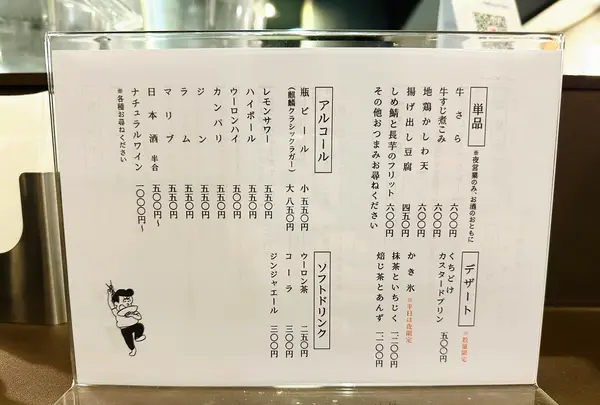 単品 ※夜営業のみ、お酒のおともに
牛さら 六〇〇円
牛すじ煮こみ 六〇〇円
地鶏かしわ天 六〇〇円
揚げ出し豆腐 四五〇円
しめ鯖と長芋のフリット 六〇〇円
その他おつまみお尋ねください
デザート ※数量限定
くちどけ
カスタードプリン 五〇〇円
かき氷 ※平日は夜限定
抹茶といちじく 一二〇〇円
焙じ茶とあんず 一二〇〇円
アルコール
瓶ビール 小 五五〇円
(麒麟クラシックラガー) 大 八五〇円
レモンサワー 五五〇円
ハイボール 五五〇円
ウーロンハイ 五五〇円
カンパリ 五五〇円
ジン 五五〇円
ラム 五五〇円
マリブ 五五〇円
日本酒 半合 五〇〇円〜
ナチュラルワイン 一〇〇〇円〜
※各種お尋ねください
ソフトドリンク
ウーロン茶 二五〇円
コーラ 三〇〇円
ジンジャエール 三〇〇円